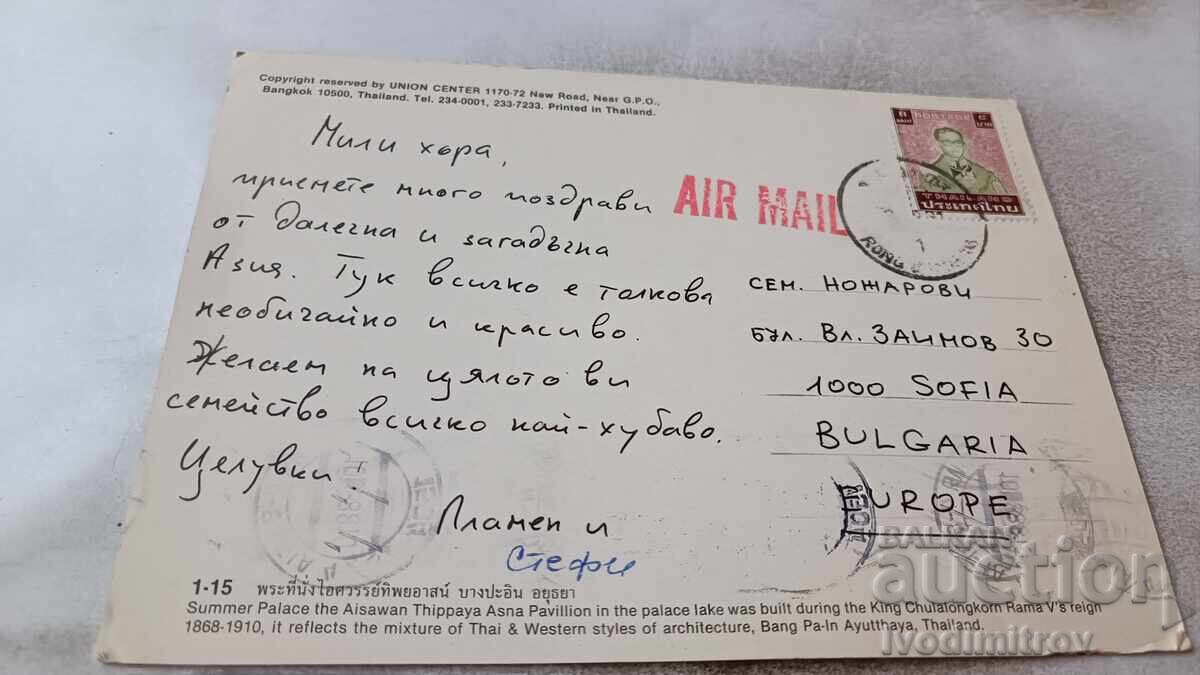 Copyright reserved by UNION CENTER 1170-72 New Road, Near G.P.O.,
Bangkok 10500, Thailand. Tel. 234-0001, 233-7233. Printed in Thailand.
Мили хора,
приемете много поздрави
от далечна и загадъчна
Азия. Тук всичко е толкова
необичайно и красиво.
Желаем на цялото ви
семейство всичко най-хубаво.
Целувки.
Пламен и
Стефи
AIR MAIL
POSTAGE
THAILAND
ประเทศไทย
RONG
1
СЕМ. НОЖАРОВИ
БУЛ. ВЛ. ЗАИМОВ 30
1000 SOFIA
BULGARIA
EUROPE
1-15 พระที่นั่งไอศวรรย์ทิพยอาสน์ บางปะอิน อยุธยา
Summer Palace the Aisawan Thippaya Asna Pavillion in the palace lake was built during the King Chulalongkorn Rama V's reign
1868-1910, it reflects the mixture of Thai & Western styles of architecture, Bang Pa-In Ayutthaya, Thailand.
BALKAN
auction
ivodimitrov